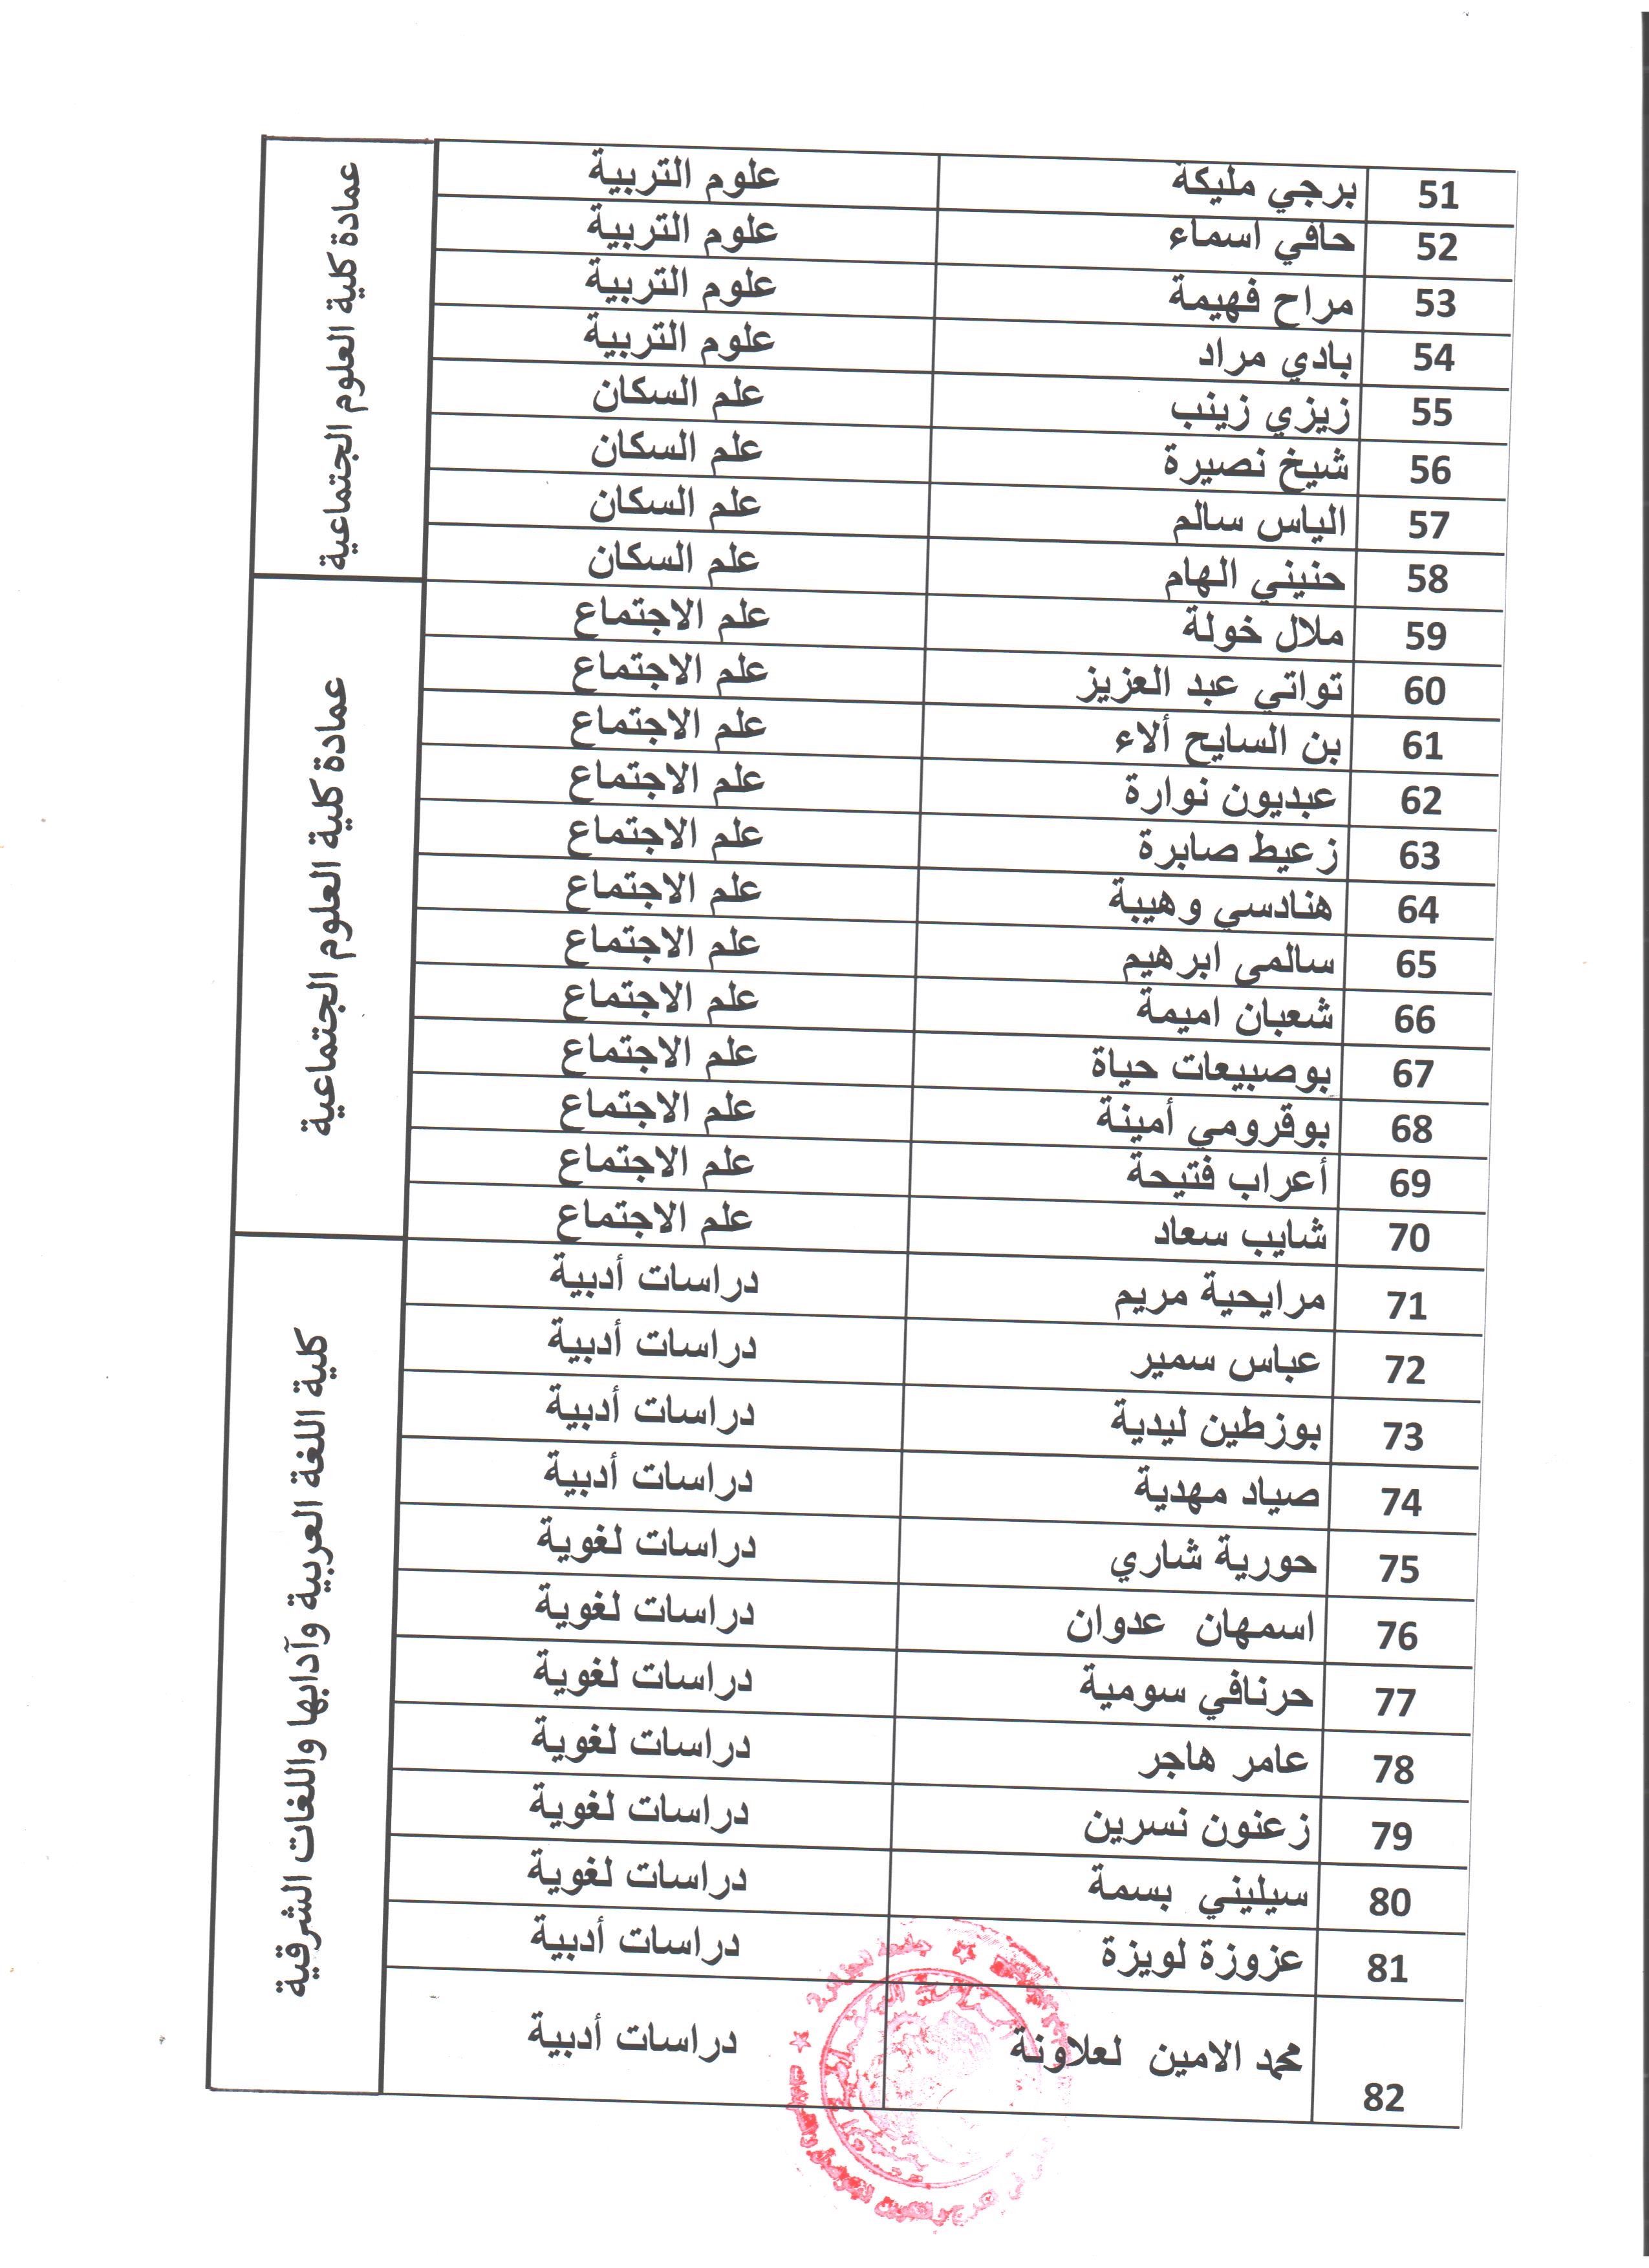 51 برجي مليكة علوم التربية
52 حافي اسماء علوم التربية
53 مراح فهيمة علوم التربية
54 بادي مراد علوم التربية
55 زيزي زينب علم السكان
56 شيخ نصيرة علم السكان
57 الياس سالم علم السكان
58 حنيني الهام علم السكان
عمادة كلية العلوم الجتماعية
59 ملال خولة علم الاجتماع
60 تواتي عبد العزيز علم الاجتماع
61 بن السايح ألاء علم الاجتماع
62 عبديون نوارة علم الاجتماع
63 زعيط صابرة علم الاجتماع
64 هنادسي وهيبة علم الاجتماع
65 سالمي ابرهيم علم الاجتماع
66 شعبان اميمة علم الاجتماع
67 بوصبيعات حياة علم الاجتماع
68 بوقرومي أمينة علم الاجتماع
69 أعراب فتيحة علم الاجتماع
70 شايب سعاد علم الاجتماع
عمادة كلية العلوم الجتماعية
71 مرايحية مريم دراسات أدبية
72 عباس سمير دراسات أدبية
73 بوزطين ليدية دراسات أدبية
74 صياد مهدية دراسات أدبية
75 حورية شاري دراسات لغوية
76 اسمهان عدوان دراسات لغوية
77 حرنافي سومية دراسات لغوية
78 عامر هاجر دراسات لغوية
79 زعنون نسرين دراسات لغوية
80 سيليني بسمة دراسات لغوية
81 عزوزة لويزة دراسات أدبية
82 محمد الامين لعلاونة دراسات أدبية
كلية اللغة العربية وآدابها واللغات الشرقية